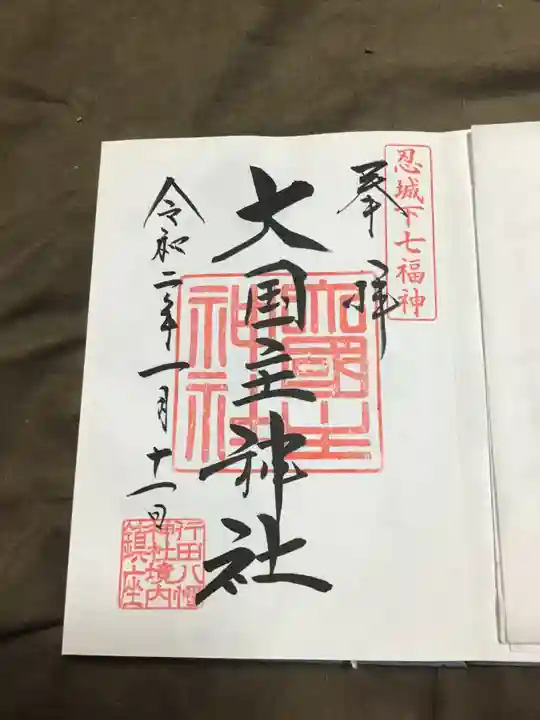 忍城下七福神
奉拝
大国主神社
大國主神社
令和二年一月十一日
行田八幡
神社境内
鎮座